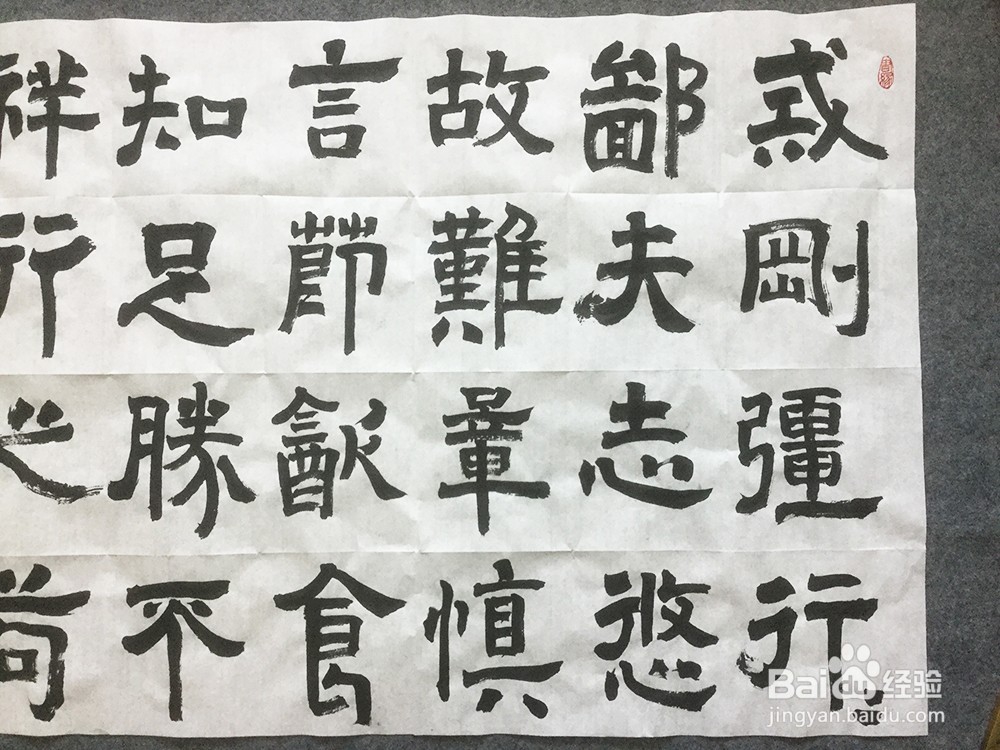 戒剛彊行〻
鄙夫志悠
故難量慎
言節㱃食
知足勝不
祥行之苟
Baidu 经验
jingyan.baidu.com